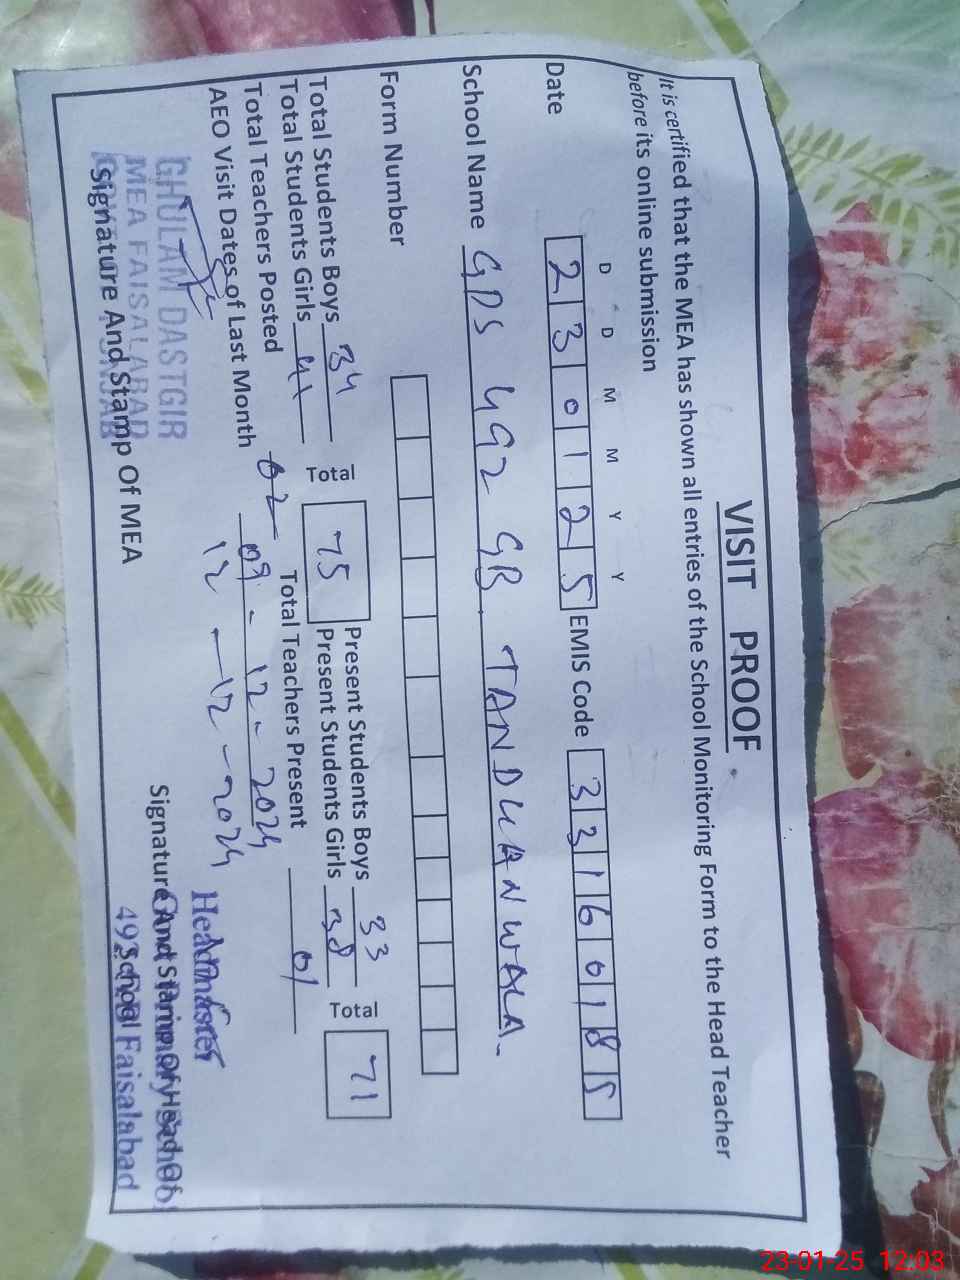 VISIT PROOF
It is certified that the MEA has shown all entries of the School Monitoring Form to the Head Teacher
before its online submission
D D M M Y Y
Date 2 3 0 1 2 5 EMIS Code 3 3 1 6 0 1 8 5
School Name GPS 492 GB TANDLIANWALA.
Form Number
Total Students Boys 34 Present Students Boys 33
Total Students Girls 41 Total 75 Present Students Girls 38 Total 71
Total Teachers Posted 02 Total Teachers Present 01
AEO Visit Dates of Last Month 09-12-2024
12-12-2024
GHULAM DASTGIR
MEA FAISALABAD
Signature And Stamp Of MEA
Headmaster
Signature And Stamp Of Head Of
School
492 GB Faisalabad
23-01-25 12:03